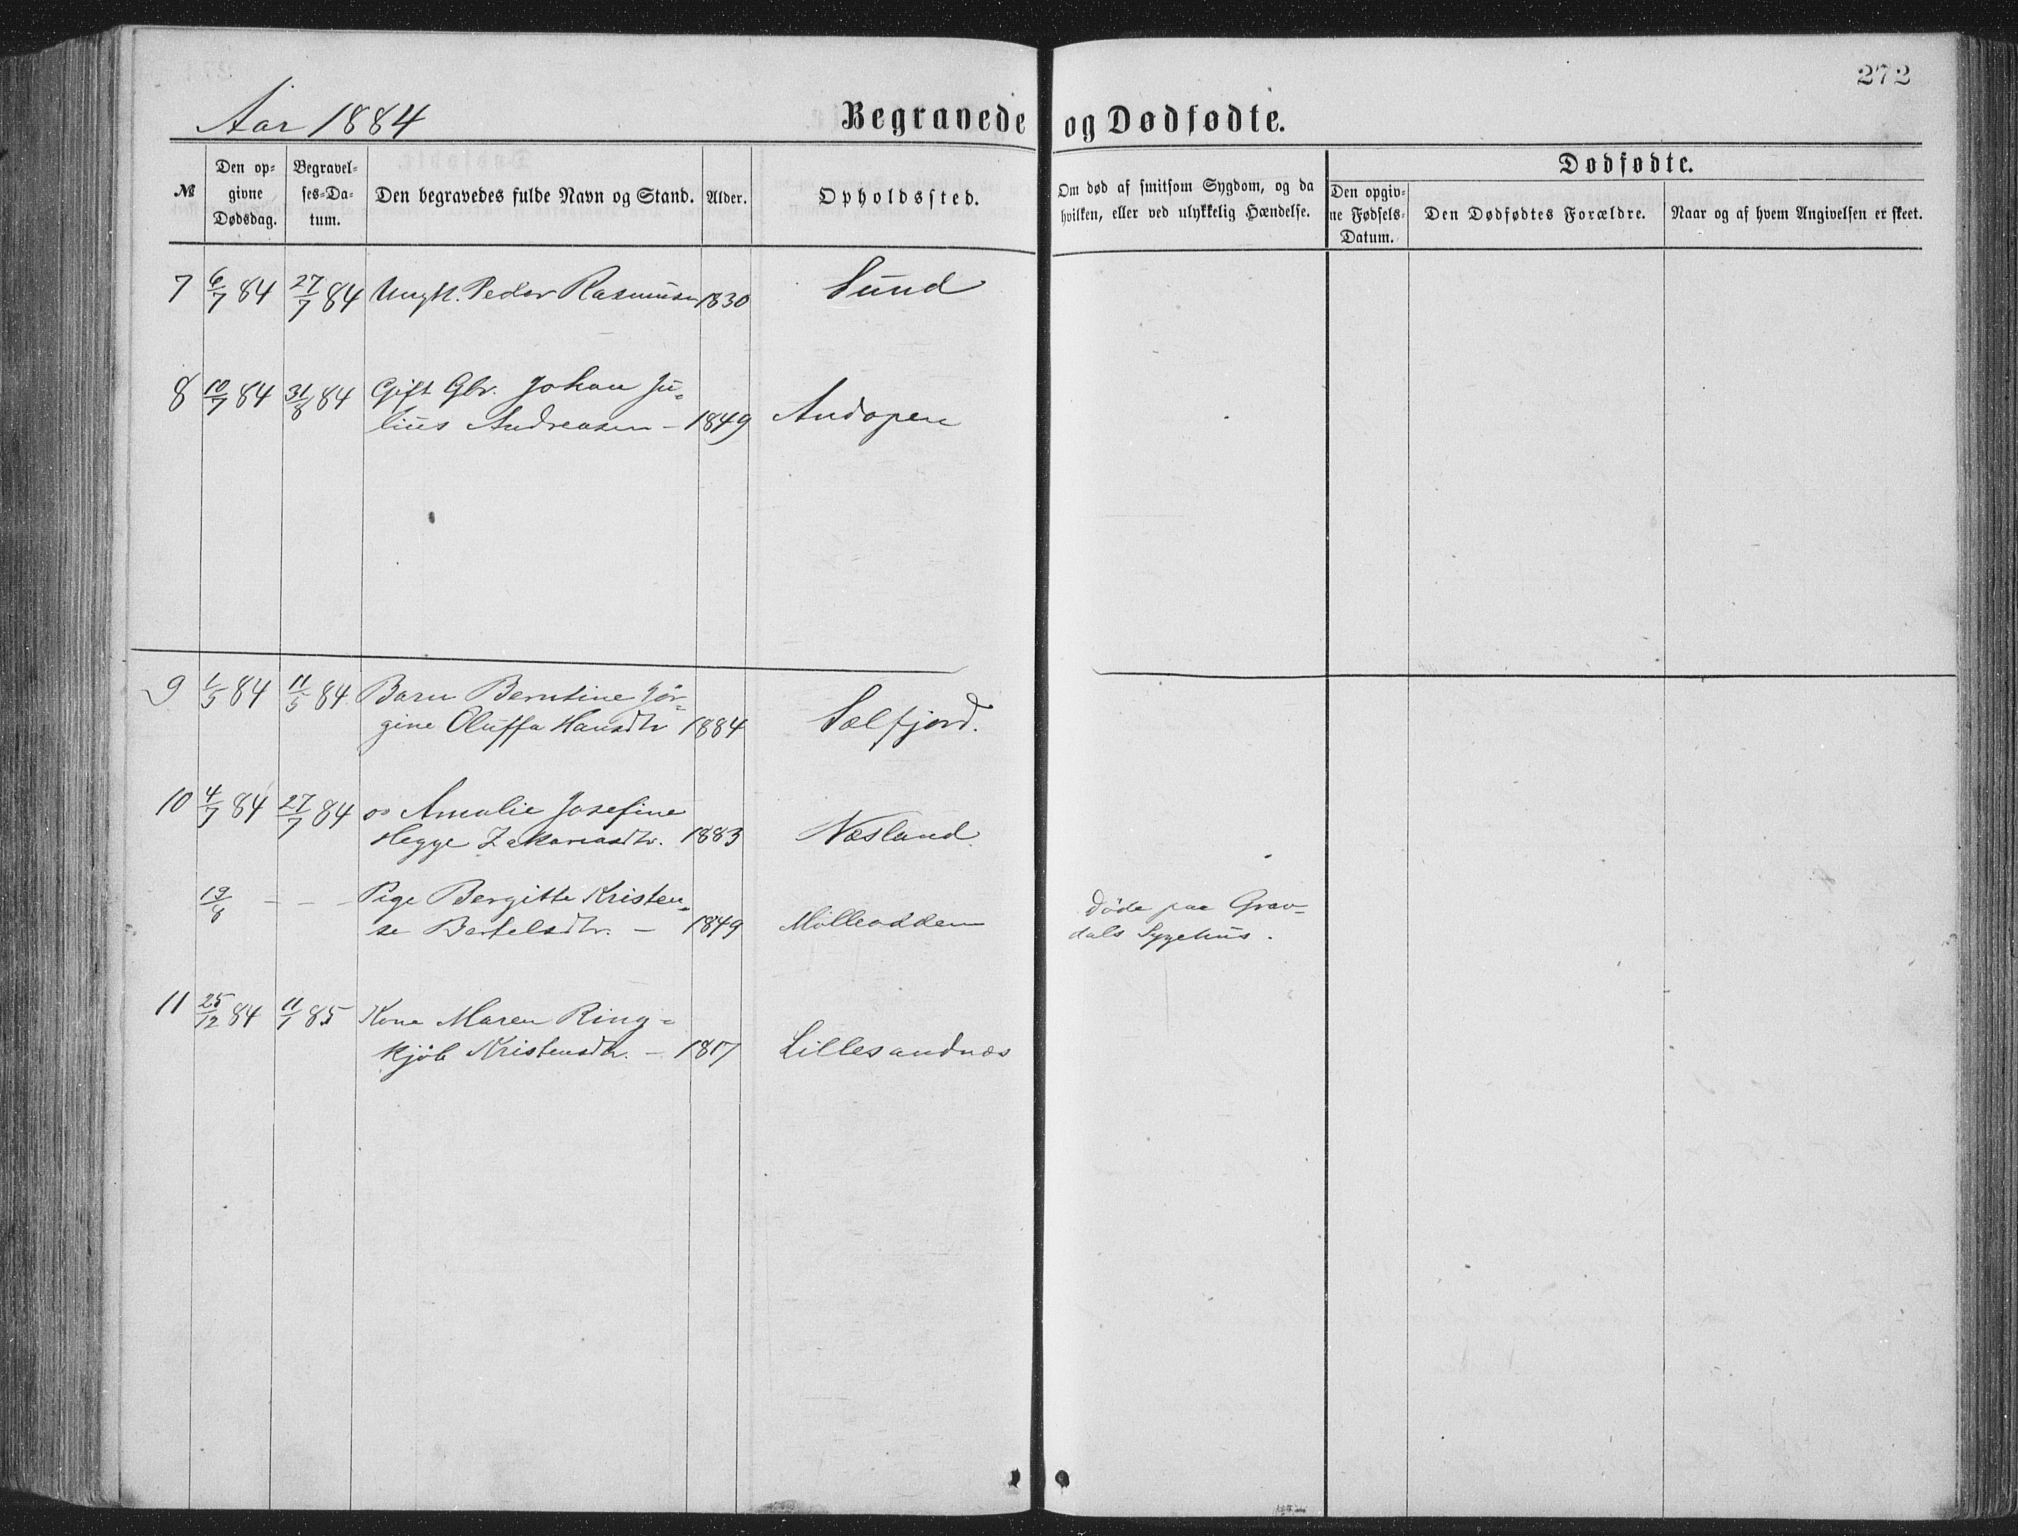 272
Aar 1884
Begravede og Dødfødte.
№
Den op-
givne
Dødsdag.
Begravel-
ses-Da-
tum.
Den begravedes fulde Navn og Stand.
Alder.
Opholdssted.
Om død af smitsom Sygdom, og da
hvilken, eller ved ulykkelig Hændelse.
Dødfødte.
Den opgiv-
ne Fødsels-
Datum.
Den Dødfødtes Forældre.
Naar og af hvem Angivelsen er skeet.
7 6/7 84 27/7 84 Ungk. Peder Rasmusen 1830 Sund
8 10/7 84 31/8 84 Gift Gbr. Johan Ju-
lius Andreasen - 1849 Andopen
9 1/5 84 11/5 84 Barn Berntine Jør-
gine Oluffa Hansdtr 1884 Selfjord.
10 4/7 84 27/7 84 do Amalie Josefine
Hegge Zakariasdtr. 1883 Næsland
19/8 - - - Pige Bergitte Kristen-
se Bertelsdtr. - 1849 Mølleodden Døde paa Grav-
dals Sygehus.
11 25/12 84 11/1 85 Kone Maren Ring-
kjøb Kristensdtr. - 1817 Lillesandnæs